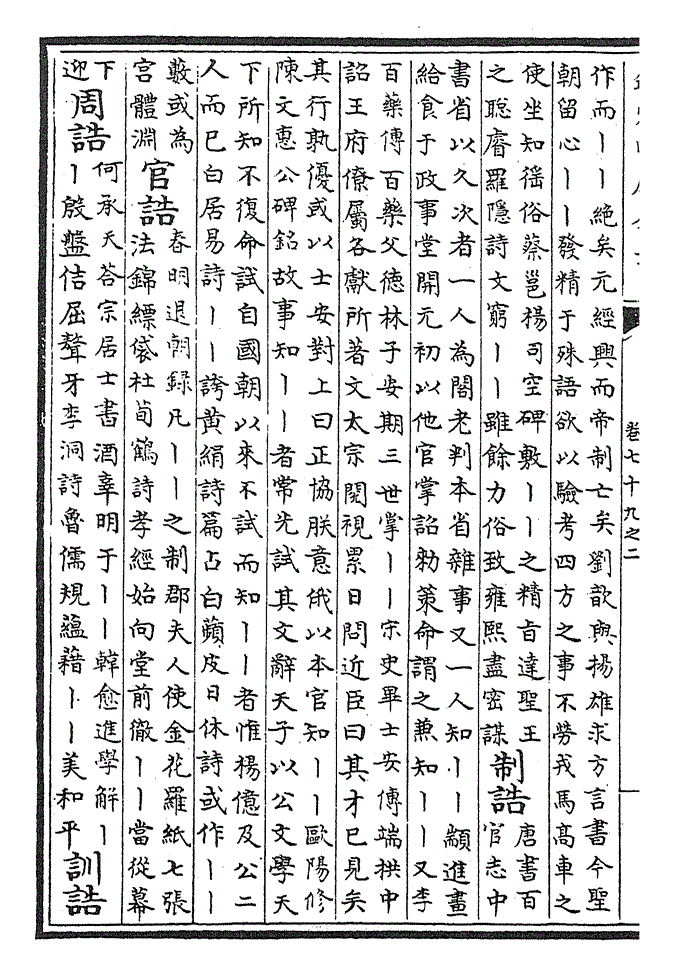 卷七十九之二
作而丨丨絶矣元經興而帝制亡矣劉歆與揚雄求方言書今聖
朝留心丨丨發精于殊語欲以驗考四方之事不勞戎馬髙車之
使坐知徭俗蔡邕楊司空碑敷丨丨之精旨達聖王
之聡睿羅隱詩文窮丨丨雖餘力俗致雍熙盡密謀
制誥
唐書百
官志中
書省以久次者一人為閣老判本省雜事又一人知丨丨顓進畫
給食于政事堂開元初以他官掌詔勅䇿命謂之兼知丨丨又李
百藥傳百藥父徳林子安期三世掌丨丨宋史畢士安傳端拱中
詔王府僚屬各獻所著文太宗閱視累日問近臣曰其才已見矣
其行孰優或以士安對上曰正協朕意俄以本官知丨丨歐陽修
陳文惠公碑銘故事知丨丨者常先試其文辭天子以公文學天
下所知不復命試自國朝以來不試而知丨丨者惟楊億及公二
人而已白居易詩丨丨誇黄絹詩篇占白蘋皮日休詩或作丨丨
藪或為
宮體淵
官誥
春明退朝録凡丨丨之制郡夫人使金花羅紙七張
法錦縹袋杜荀鶴詩孝經始向堂前徹丨丨當從幕
下
迎
周誥
何承天荅宗居士書酒辜明于丨丨韓愈進學解丨
丨殷盤佶屈聱牙李洞詩魯儒規蘊藉丨丨美和平
訓誥